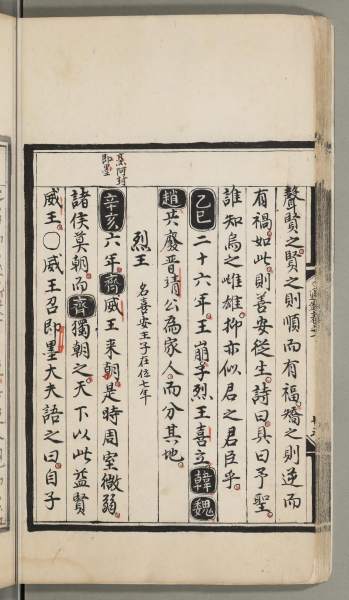 聲賢之賢之則順而有福矯之則逆而
有禍如此則善安從生詩曰具曰予聖
誰知烏之雌雄抑亦似君之君臣乎
乙巳二十六年王崩子烈王喜立韓魏
趙共廢晉靖公為家人而分其地
烈王 名喜安王子在位七年
辛亥六年齊威王来朝是時周室微弱
諸侯莫朝而齊獨朝之天下以此益賢
威王〇威王召即墨大夫語之曰自子
阿封
即墨